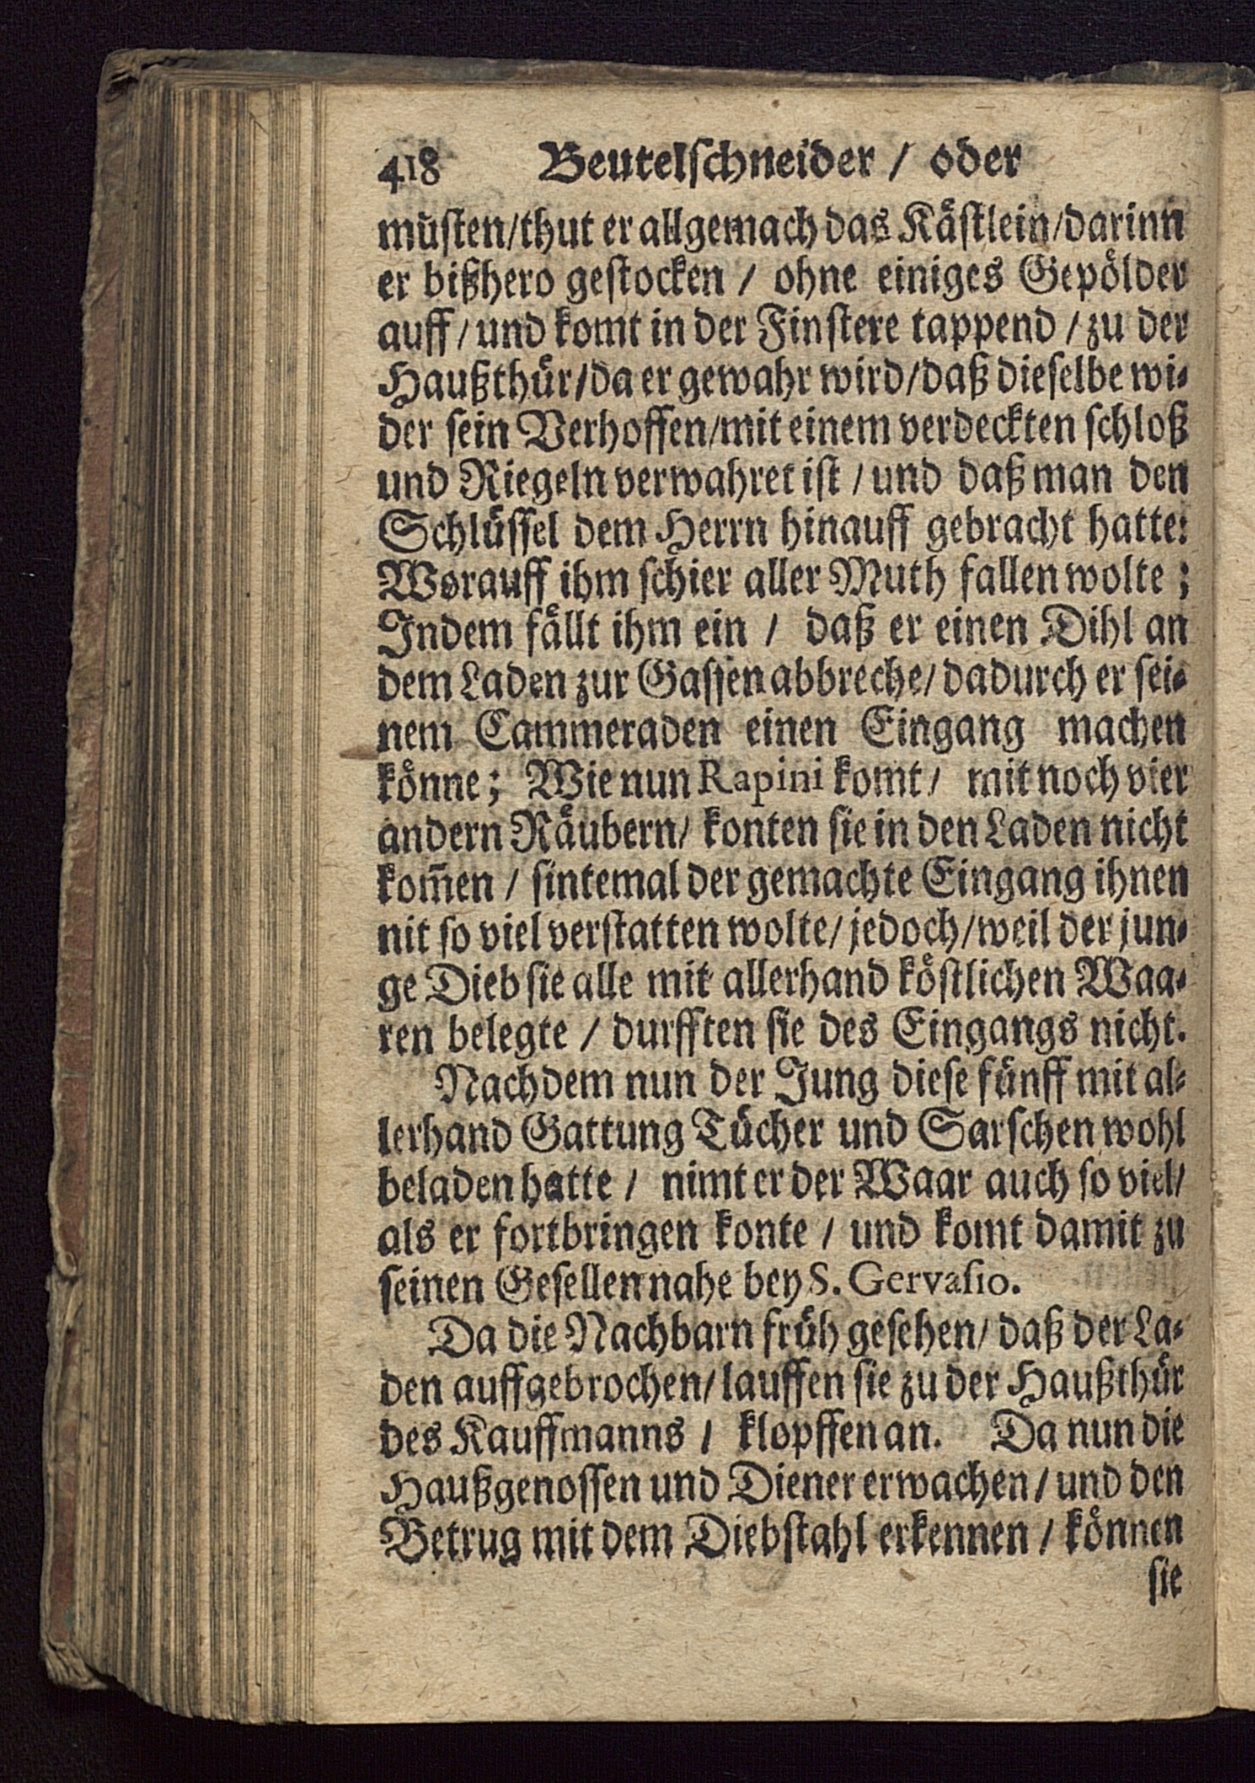 418 Beutelschneider / oder
müsten/thut er allgemach das Kästlein/darinn
er bißhero gestocken / ohne einiges Gepölder
auff / und komt in der Finstere tappend / zu der
Haußthür/da er gewahr wird/daß dieselbe wi-
der sein Verhoffen/mit einem verdeckten schloß
und Riegeln verwahret ist / und daß man den
Schlüssel dem Herrn hinauff gebracht hatte:
Worauff ihm schier aller Muth fallen wolte ;
Indem fällt ihm ein / daß er einen Dihl an
dem Laden zur Gassen abbreche/ dadurch er sei-
nem Cammeraden einen Eingang machen
könne; Wie nun Rapini komt / mit noch vier
andern Räubern/ konten sie in den Laden nicht
kom̃en / sintemal der gemachte Eingang ihnen
nit so viel verstatten wolte/ jedoch/weil der jun-
ge Dieb sie alle mit allerhand köstlichen Waa-
ren belegte / durfften sie des Eingangs nicht.
Nachdem nun der Jung diese fünff mit al-
lerhand Gattung Tücher und Sarschen wohl
beladen hatte / nimt er der Waar auch so viel/
als er fortbringen konte / und komt damit zu
seinen Gesellen nahe bey S. Gervasio.
Da die Nachbarn früh gesehen/ daß der La-
den auffgebrochen/ lauffen sie zu der Haußthür
des Kauffmanns / klopffen an. Da nun die
Haußgenossen und Diener erwachen / und den
Betrug mit dem Diebstahl erkennen / können
sie